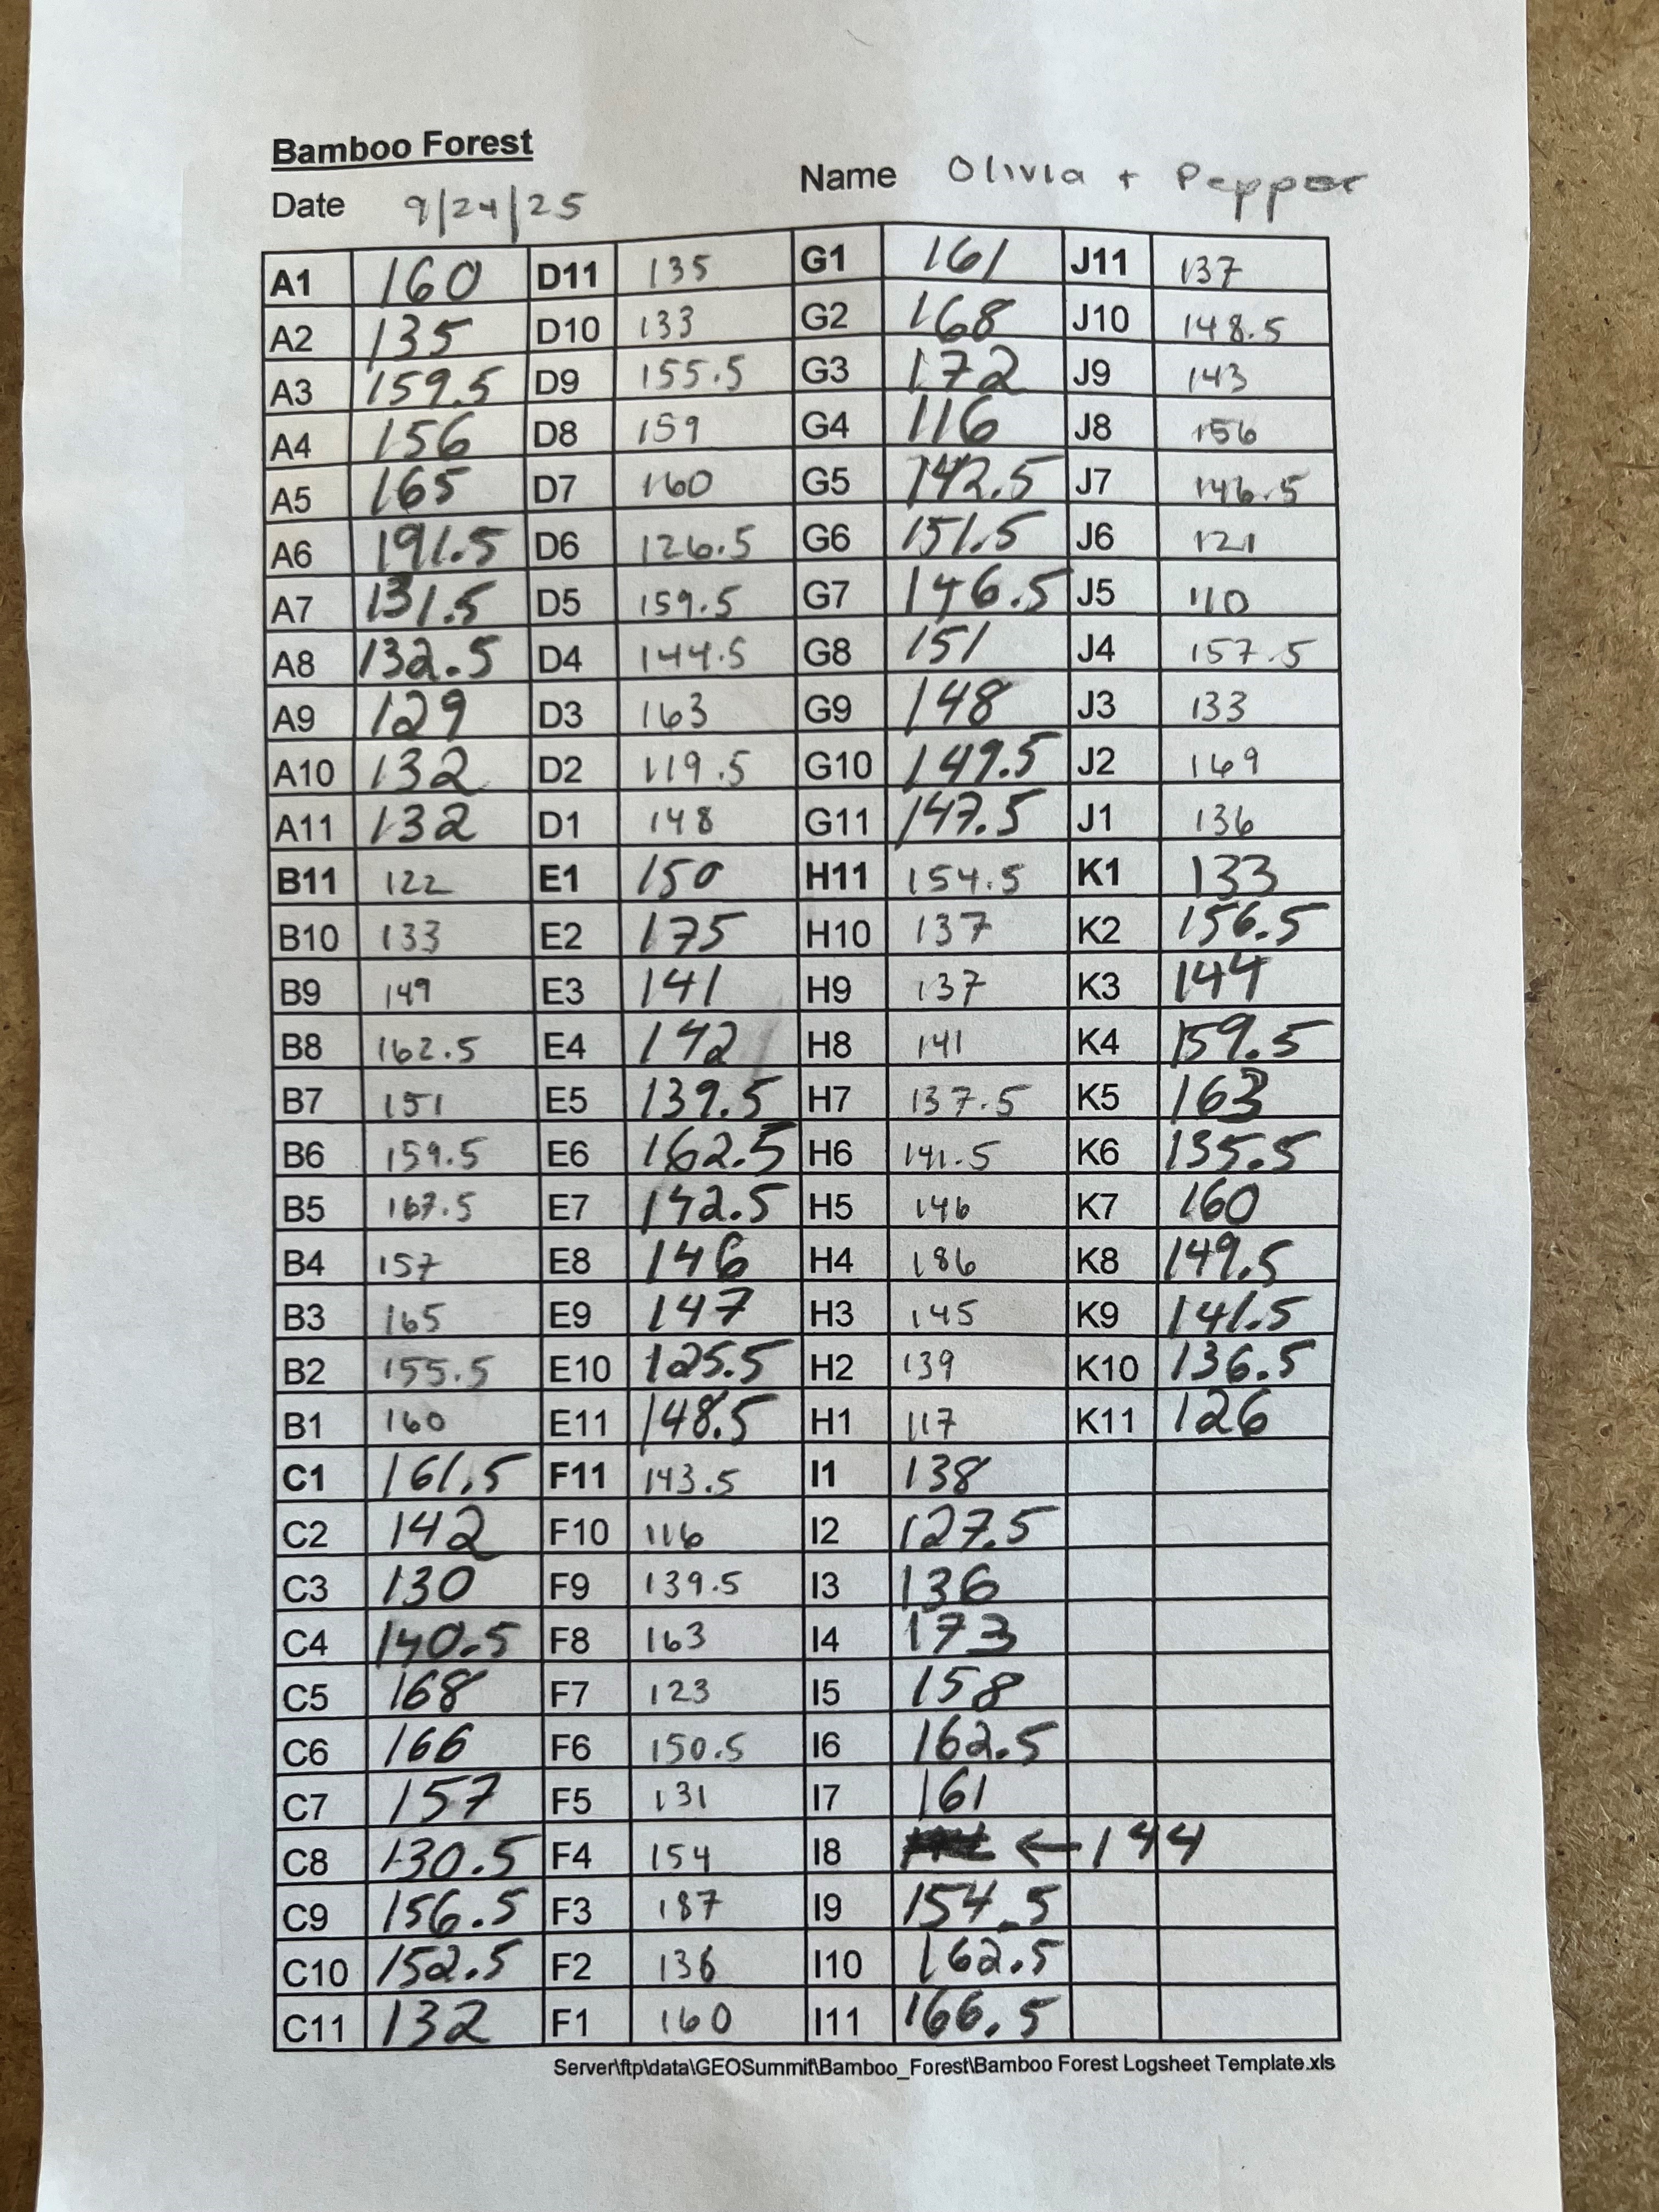 Bamboo Forest
Date 9/24/25 Name Olivia + Pepper
A1 160 D11 135 G1 161 J11 137
A2 135 D10 133 G2 168 J10 148.5
A3 159.5 D9 155.5 G3 172 J9 143
A4 156 D8 159 G4 116 J8 156
A5 165 D7 160 G5 142.5 J7 146.5
A6 191.5 D6 126.5 G6 151.5 J6 121
A7 131.5 D5 159.5 G7 146.5 J5 110
A8 132.5 D4 144.5 G8 151 J4 157.5
A9 129 D3 163 G9 148 J3 133
A10 132 D2 119.5 G10 149.5 J2 169
A11 132 D1 148 G11 147.5 J1 136
B11 122 E1 150 H11 154.5 K1 133
B10 133 E2 175 H10 137 K2 156.5
B9 149 E3 141 H9 137 K3 144
B8 162.5 E4 142 H8 141 K4 159.5
B7 151 E5 139.5 H7 137.5 K5 163
B6 159.5 E6 162.5 H6 141.5 K6 135.5
B5 167.5 E7 142.5 H5 146 K7 160
B4 157 E8 146 H4 186 K8 149.5
B3 165 E9 147 H3 145 K9 141.5
B2 155.5 E10 125.5 H2 139 K10 136.5
B1 160 E11 148.5 H1 117 K11 126
C1 161.5 F11 143.5 I1 138
C2 142 F10 116 I2 127.5
C3 130 F9 139.5 I3 136
C4 140.5 F8 163 I4 173
C5 168 F7 123 I5 158
C6 166 F6 150.5 I6 162.5
C7 157 F5 131 I7 161
C8 130.5 F4 154 I8 ← 144
C9 156.5 F3 187 I9 154.5
C10 152.5 F2 136 I10 162.5
C11 132 F1 160 I11 166.5
Server\ftp\data\GEOSummit\Bamboo_Forest\Bamboo Forest Logsheet Template.xls